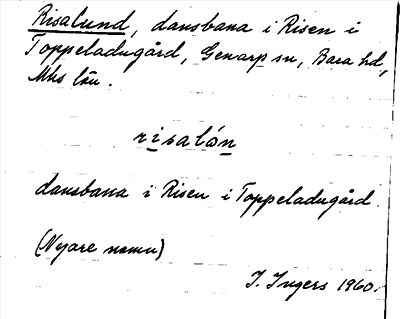 Risalund, dansbana i Risen i
Toppeladugård, Genarp sn, Bara hd,
Mhs län.
risalón
dansbana i Risen i Toppeladugård.
(Nyare namn)
I. Ingers 1960.